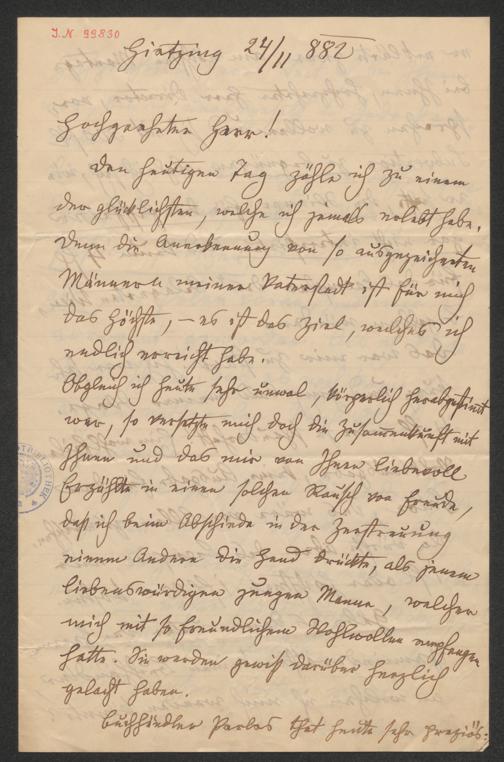 J. N 99830
Hietzing 24/11 882
Hochgeehrter Herr!
Den heutigen Tag zähle ich zu einem
der glücklichsten, welche ich jemals erlebt habe.
Denn die Anerkennung von so ausgezeichneten
Männern meiner Vaterstadt ist für mich
das Höchste, – es ist das Ziel, welches ich
endlich erreicht habe.
Obgleich ich heute sehr unwol, körperlich herabgestimt
war, so versetzte mich doch die Zusammenkunft mit
Ihnen und das mir von Ihnen liebevoll
Erzählte in einen solchen Rausch von Freude,
daß ich beim Abschiede in der Zerstreuung
einem Andern die Hand drückte, als jenem
liebenswürdigen jungen Manne, welcher
mich mit so freundlichem Wohlwollen empfangen
hatte. Sie werden gewiß darüber herzlich
gelacht haben.
Buchhändler that heute sehr preziös: